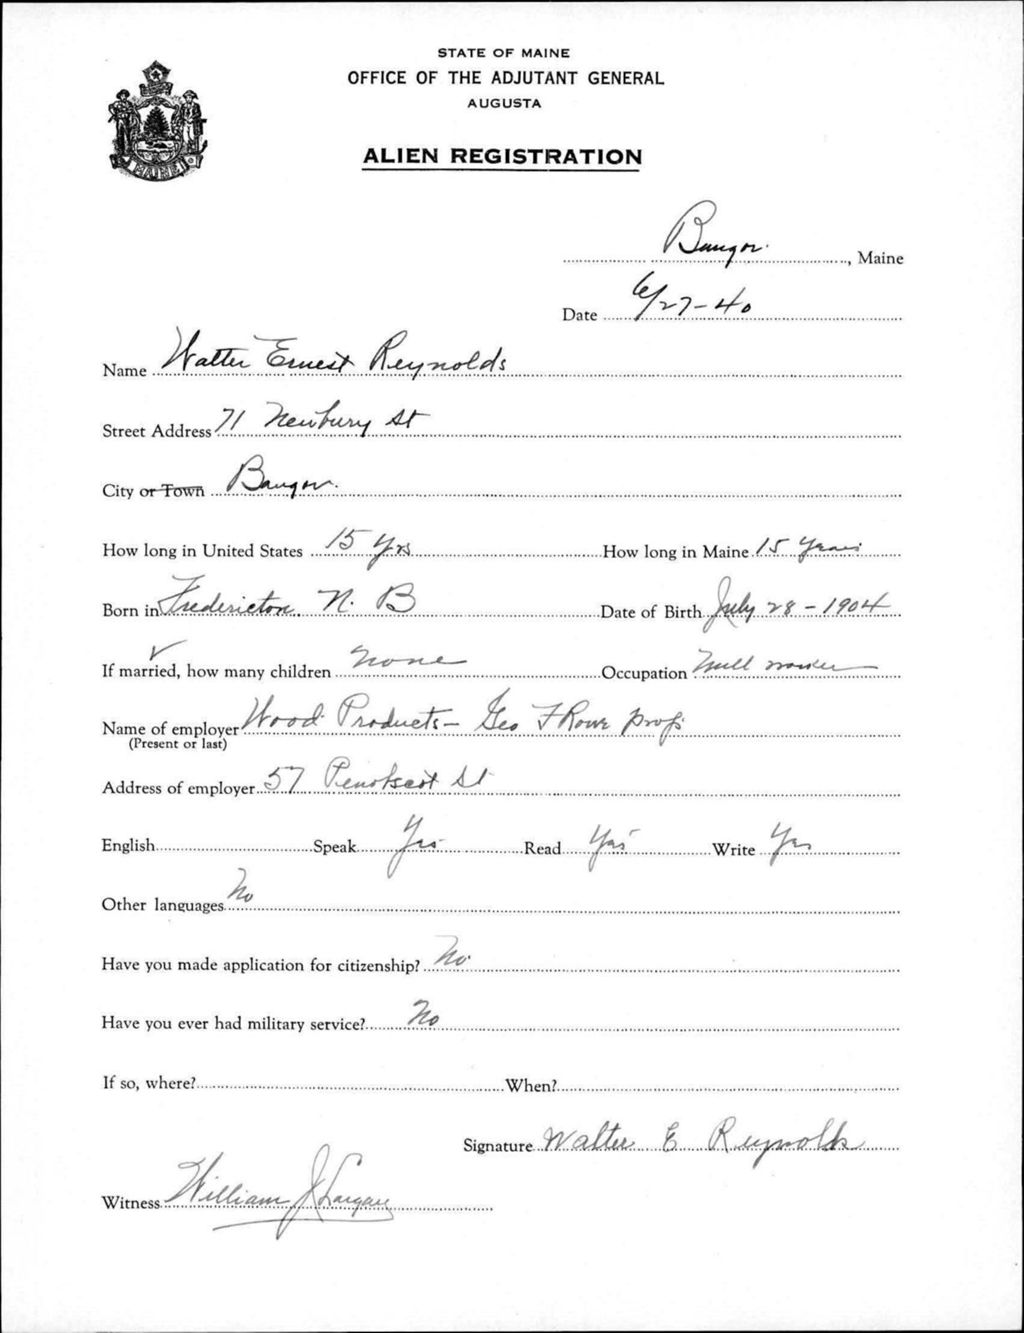 STATE OF MAINE
OFFICE OF THE ADJUTANT GENERAL
AUGUSTA
ALIEN REGISTRATION
Bangor, Maine
Date 6/27-40
Name Walter Ernest Reynolds
Street Address 71 Newbury St
City or Town Bangor.
How long in United States 15 Yrs How long in Maine 15 Years
Born in Fredericton, N. B Date of Birth July 28-1904
If married, how many children None Occupation Mill worker
Name of employer Wood Products - Geo F Rowe prop
(Present or last)
Address of employer 57 Penobscot St
English Speak Yes Read Yes Write Yes
Other languages No
Have you made application for citizenship? No
Have you ever had military service? No
If so, where? When?
Signature Walter E Reynolds
Witness William J